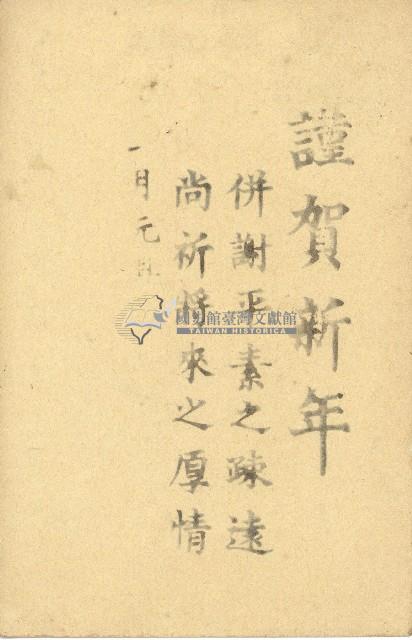 謹賀新年
併謝平素之疎遠
尚祈將來之厚情
一月元旦
國史館臺灣文獻館
TAIWAN HISTORICA